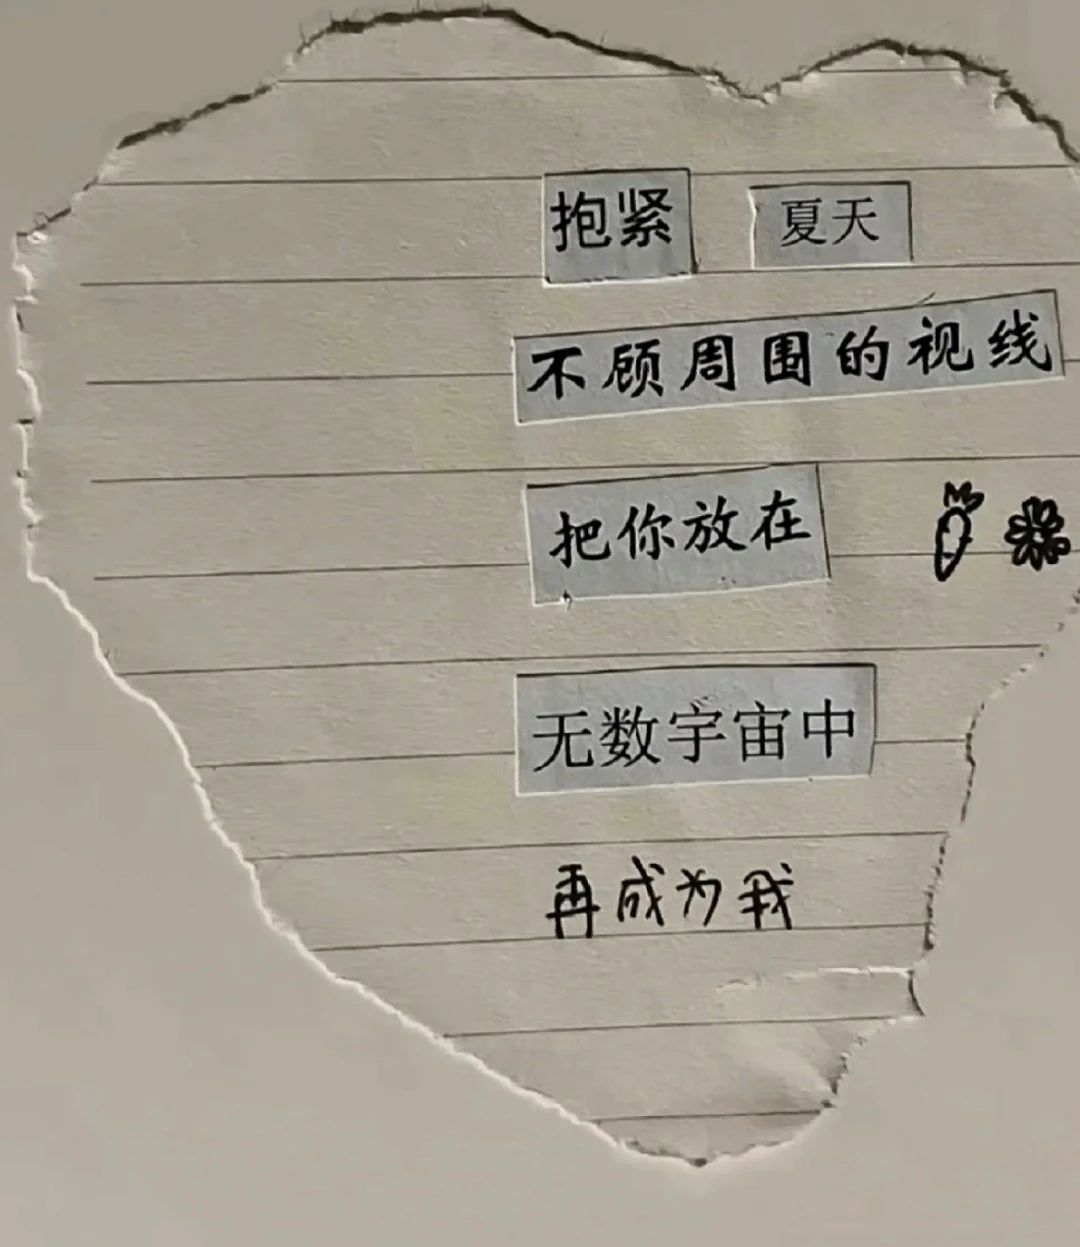 抱紧 夏天
不顾周围的视线
把你放在
无数宇宙中
再成为我